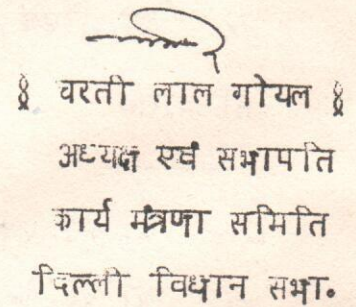 चरती लाल गोयल
अध्यक्ष एवं सभापति
कार्य मंत्रणा समिति
दिल्ली विधान सभा.